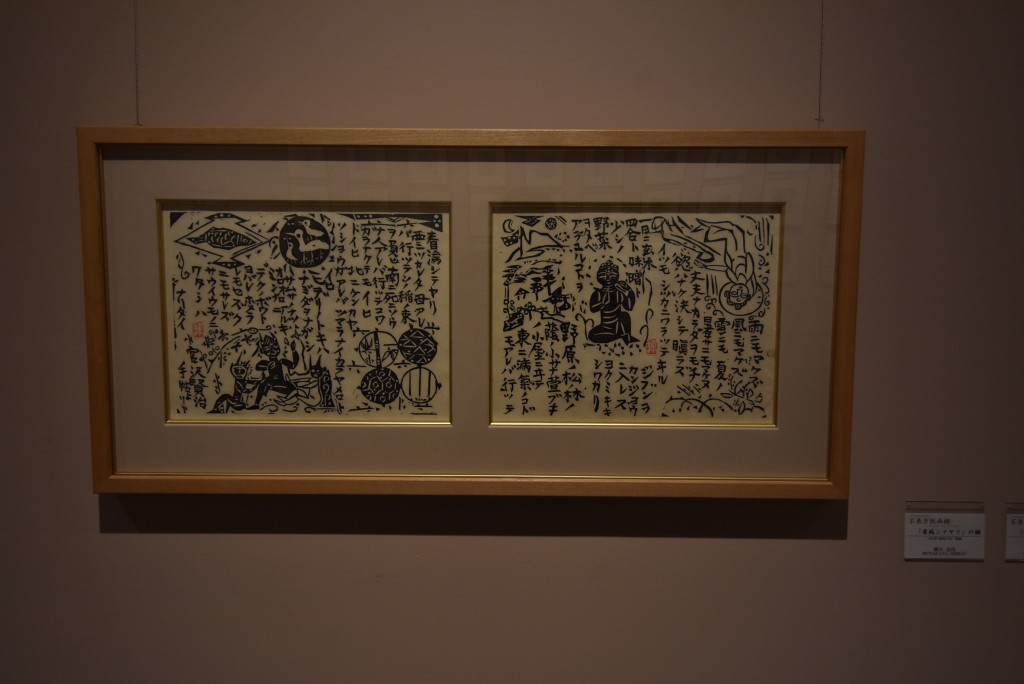 雨ニモマケズ
風ニモマケズ
雪ニモ 夏ノ
暑サニモマケヌ
丈夫ナカラダヲモチ
慾ハナク 決シテ瞋ラズ
イツモ シヅカニワラッテヰル
一日ニ玄米
四合ト 味噌ト
少シノ
野菜
ヲタベ
アラユルコトヲ
ジブンヲ
カンジョウ
ニ入レズ
ヨクミキキ
シワカリ
野原ノ松林ノ
蔭ノ小サナ萱ブキ
ノ小屋ニヰテ
東ニ病気ノコド
モアレバ行ッテ
看病シテヤリ
西ニツカレタ 母アレ
バ行ッテソノ 稲ノ束
ヲ負ヒ 南ニ死ニソウ
ナ人アレバ 行ッテコワ
ガラナクテモ イイ
トイヒ 北ニケンクヮヤ
ソショウガアレバ ツマラナイカラヤメロト
イヒ
ヒデリノトキハ
ナミダヲナガシ
サムサノナツハ
オロオロアルキ
ミンナニ
デクノボート
ヨバレ ホメラ
レモセズ
クニモサレズ
サウイウモノニ
ワタシハ
ナリタイ
宮沢賢治
手帳より